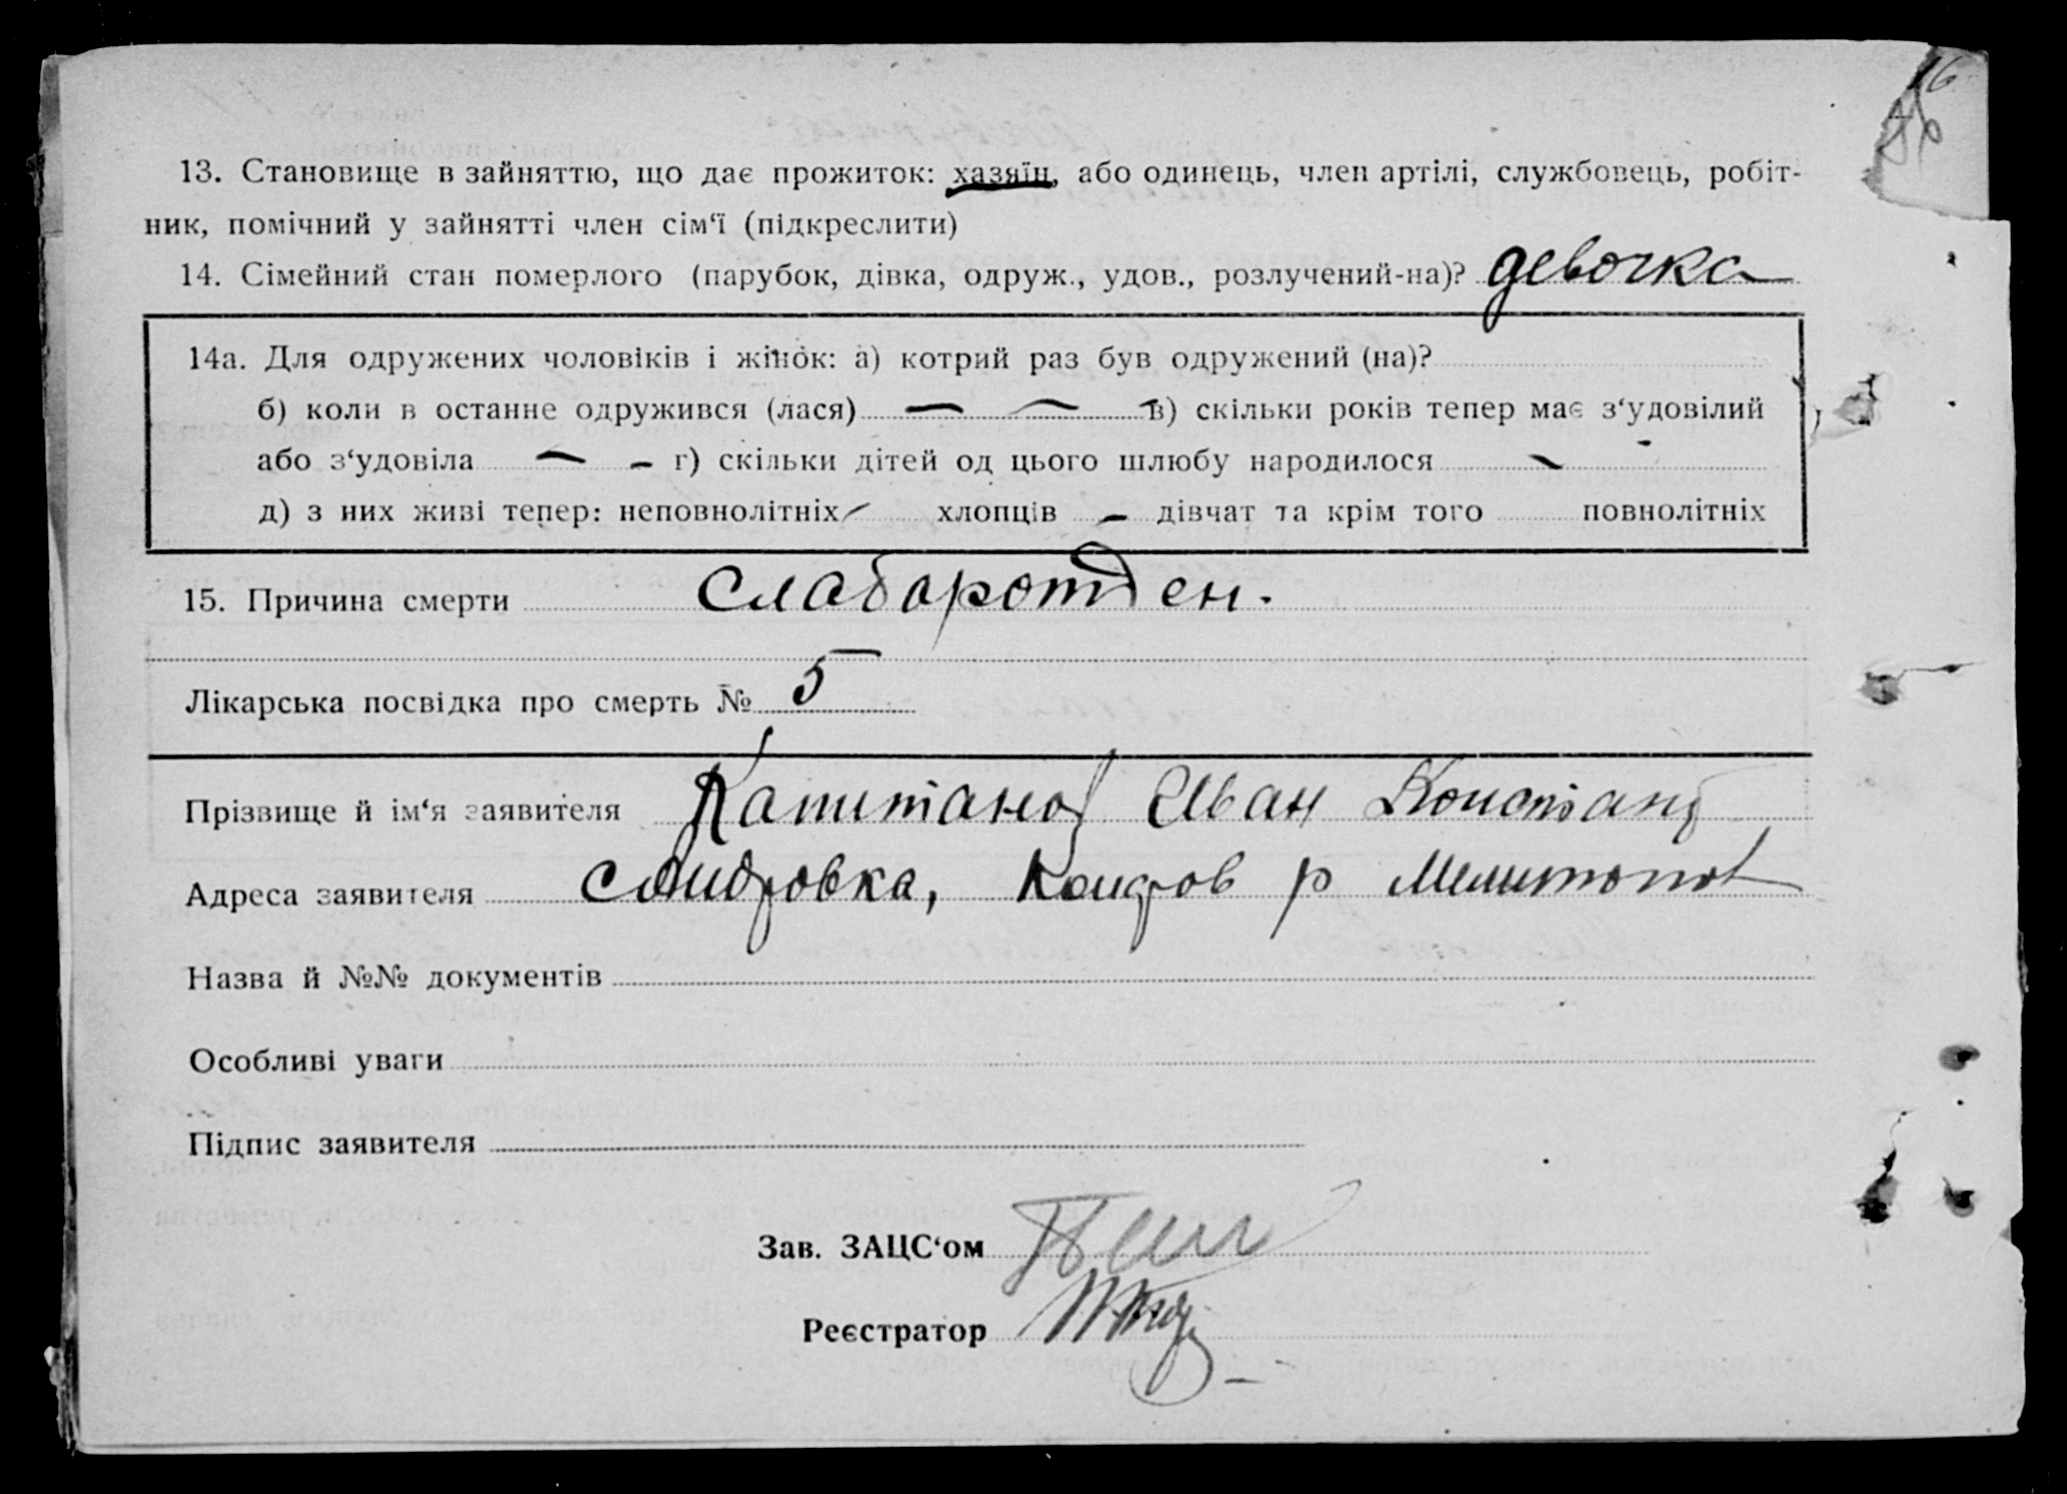 16
13. Становище в зайняттю, що дає прожиток: хазяїн, або одинець, член артілі, службовець, робіт-
ник, помічний у зайнятті член сім‘ї (підкреслити)
14. Сімейний стан померлого (парубок, дівка, одруж., удов., розлучений-на)? девочка
14а. Для одружених чоловіків і жінок: а) котрий раз був одружений (на)?
б) коли в останнє одружився (лася) — — в) скільки років тепер має з‘удовілий
або з‘удовіла — – г) скільки дітей од цього шлюбу народилося –
д) з них живі тепер: неповнолітніх – хлопців – дівчат та крім того повнолітніх
15. Причина смерти слаборотден.
Лікарська посвідка про смерть № 5
Прізвище й ім‘я заявителя Капитанов Иван Констант
Адреса заявителя Мелитопол
Назва й №№ документів
Особливі уваги
Підпис заявителя
Зав. ЗАЦС‘ом
Реєстратор